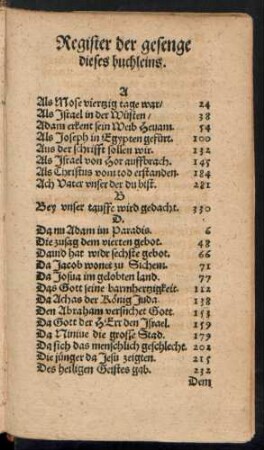 Register der gesenge
dieses buchleins.
A
Als Mose viertzig tage war/ 24
Als Israel in der Wüsten/ 38
Adam erkent sein Weib Hevam. 54
Als Joseph in Egypten gefürt. 100
Aus der schrifft sollen wir. 132
Als Israel von Hor auffbrach. 145
Als Christus vom tod erstanden. 184
Ach Vater unser der du bist. 281
B
Bey unser tauffe wird gedacht. 330
D.
Da nu Adam im Paradis. 6
Die zusag dem vierten gebot. 48
David hat wide sechste gebot. 66
Da Jacob wonet zu Sichem. 71
Da Josua im gelobten land. 77
Das Gott seine barmhertzigkeit. 112
Da Achas der König Juda 138
Den Abraham versuchet Gott. 153
Da Gott der HErr den Israel. 159
Da Ninive die grosse Stad. 179
Da sich das menschlich geschlecht. 202
Die jünger da Jesu zeigten. 215
Des heiligen Geistes gab. 232
Dem